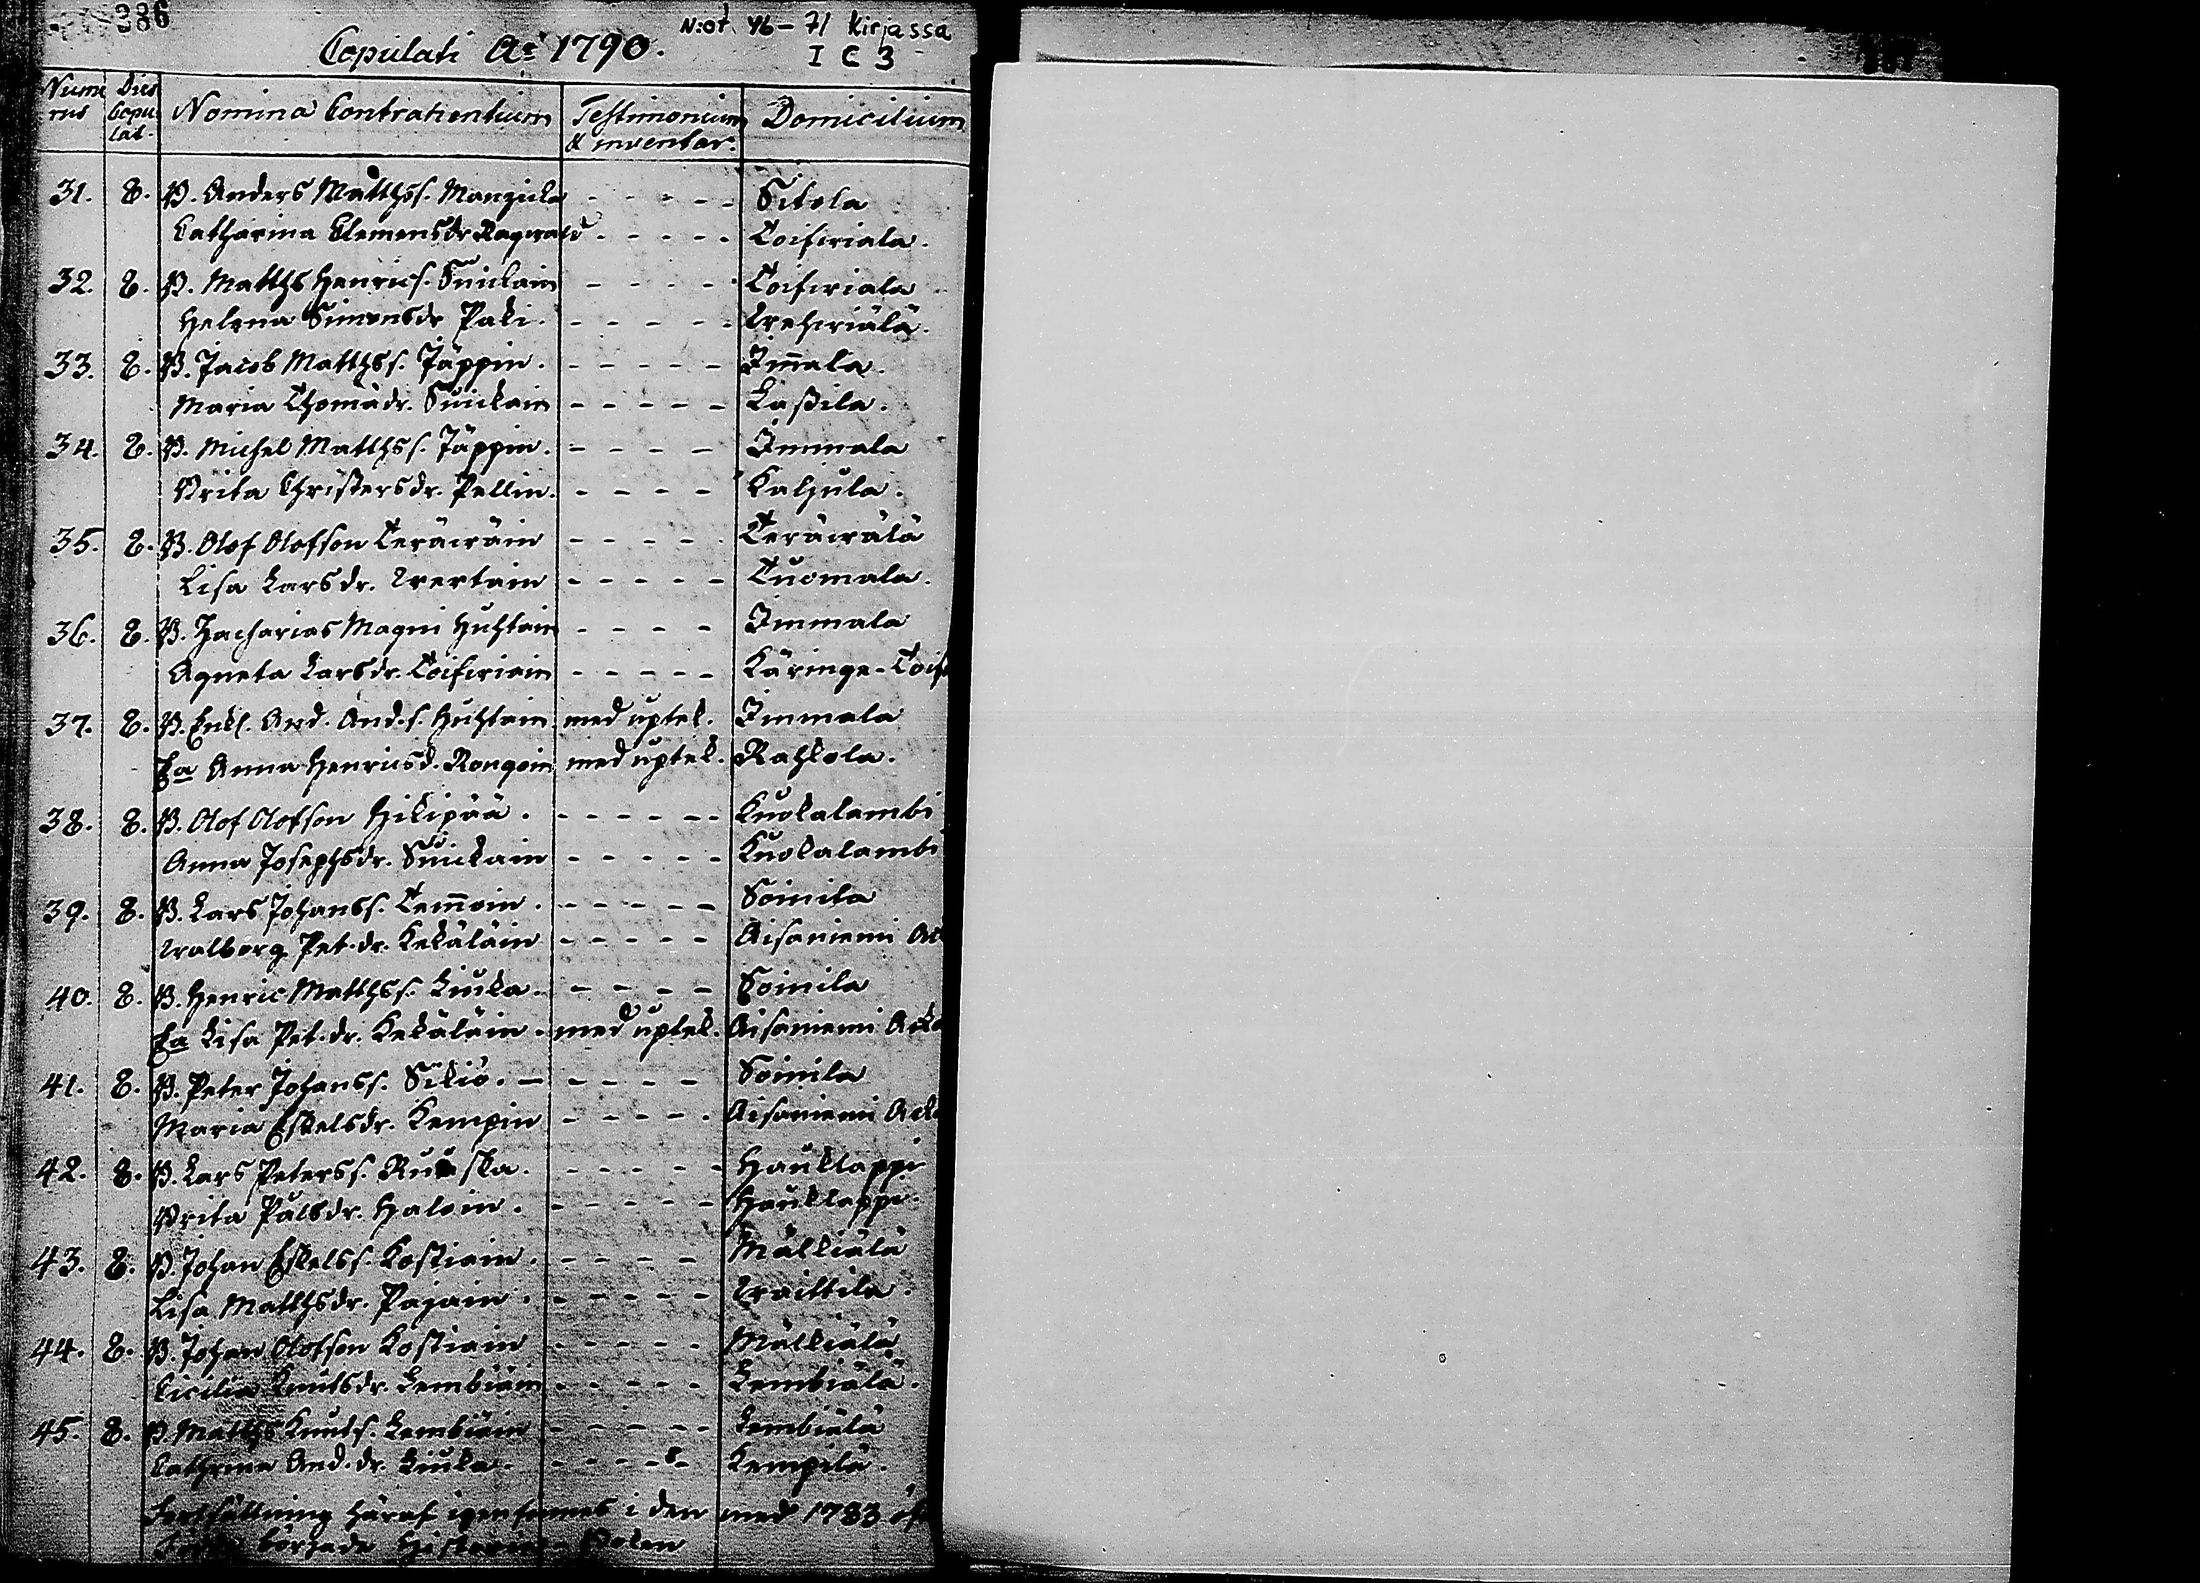 386
N:ot 46-71 kirjassa
I C 3
Copulati Ao 1790.
Numerus Dies Copulat. Nomina Contrahentium Testimonium & inventar. Domicilium
31. 8. B. Anders Matthss. Manzicka - - - - - Sitola
Catharina Clemensdr Ragwald - - - - - Toifwiala.
32. 8. B. Matths Henrics. Suickain - - - - - Toifwiala
Helena Simonsdr Paki. - - - - - Wehwiälä.
33. 8. B. Jacob Matthss. Täppin. - - - - - Im̄ala.
Maria Thomædr. Suickain - - - - - Laßila.
34. 8. B. Michel Matthss. Täppin. - - - - Immala
Brita Christersdr. Pellin. - - - - Kaljula.
35. 8. B. Olof Olofson Teräwäin - - - - - Teräwälä
Lisa Larsdr. Wertain - - - - - Tuomala.
36. 8. B. Zacharias Magni Huhtain - - - - Immala
Agneta Larsdr. Toifwiain - - - - - Käringe-Toif
37. 8. B. Enkl. And. And.s. Huhtain. med uptek. Immala
Ea Anna Henricsd. Rongoin med uptek. Rahkola.
38. 8. B. Olof Olofson Hikipää. - - - - - - Kuokalambi
Anna Josephsdr. Suickain - - - - - Kuokalambi
39. 8. B. Lars Johanss. Tem̄oin. - - - - - Soimila
Walborg Pet.dr. Kekäläin - - - - - Aisaniemi
40. 8. B. Henric Matthss. Kiuka. - - - - - Soimila
Ea Lisa Pet.dr. Kekäläin. med uptek. Aisaniemi
41. 8. B. Peter Johanss. Sikiö. - - - - - Soimila
Maria Eskelsdr. Kempin - - - - - Aisaniemi
42. 8. B. Lars Peterss. Ruuska. - - - - - Hauklappi
Brita Pålsdr. Haloin. - - - - - Hauklappi.
43. 8. B. Johan Eskelss. Kostiain. - - - - - Mälkiälä
Lisa Matthsdr. Pajain. - - - - - Waittila.
44. 8. B. Johan Olofson Kostiain - - - - - Mälkiälä
Cicilia Knutsdr. Lembiäin - - - - - Lembiälä.
45. 8. B. Matths Knuts. Lembiäin - - - - - Lembiälä
Cathrina And.dr. Kiuka. - - - - - Kempilä.
Fortsättning häraf igenfinnes i den med 1783
började Historie Boken